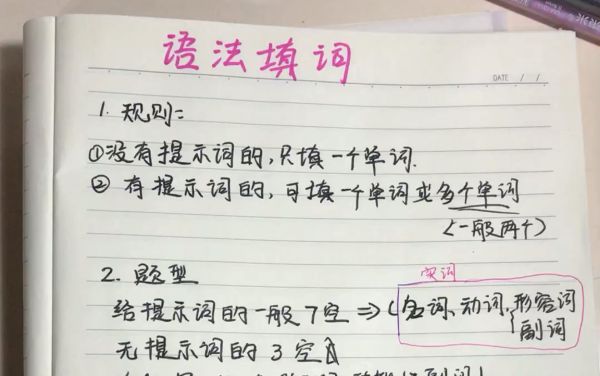 语法填词
DATE / /
1. 规则:
①没有提示词的,只填一个单词.
② 有提示词的,可填一个单词或多个单词
(一般两个)
2. 题型
实词
给提示词的一般7空 ⇒ (名词、动词、{形容词
副词
无提示词的3空